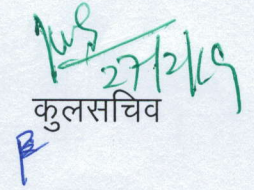 27/2/19
कुलसचिव